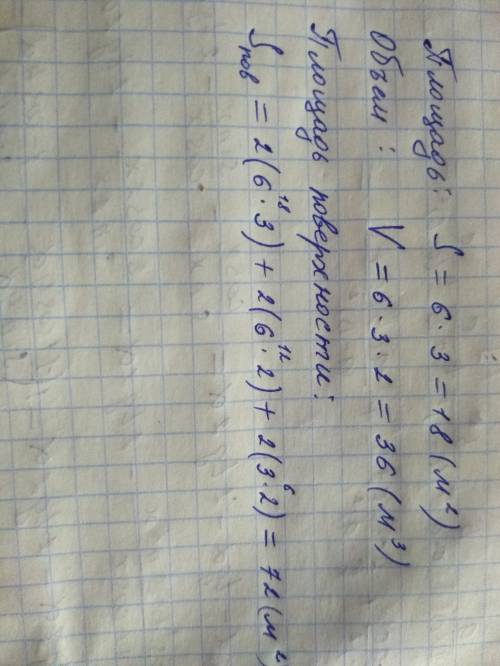 Площадь: S = 6 · 3 = 18 (м²)
Объем: V = 6 · 3 · 2 = 36 (м³)
Площадь поверхности:
18 12 6
Sпов = 2(6 · 3) + 2(6 · 2) + 2(3 · 2) = 72 (м²)